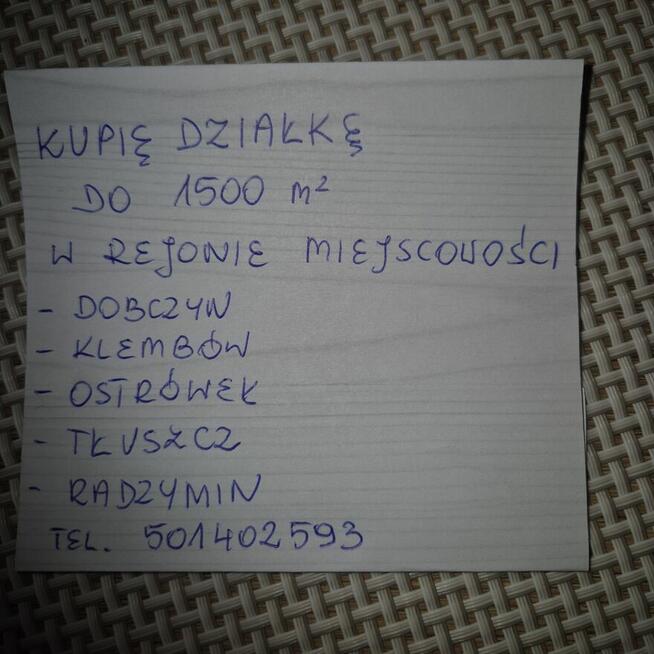 KUPIĘ DZIAŁKĘ
DO 1500 m²
W REJONIE MIEJSCOWOŚCI
- DOBCZYN
- KLEMBÓW
- OSTRÓWEK
- TŁUSZCZ
- RADZYMIN
TEL. 501402593